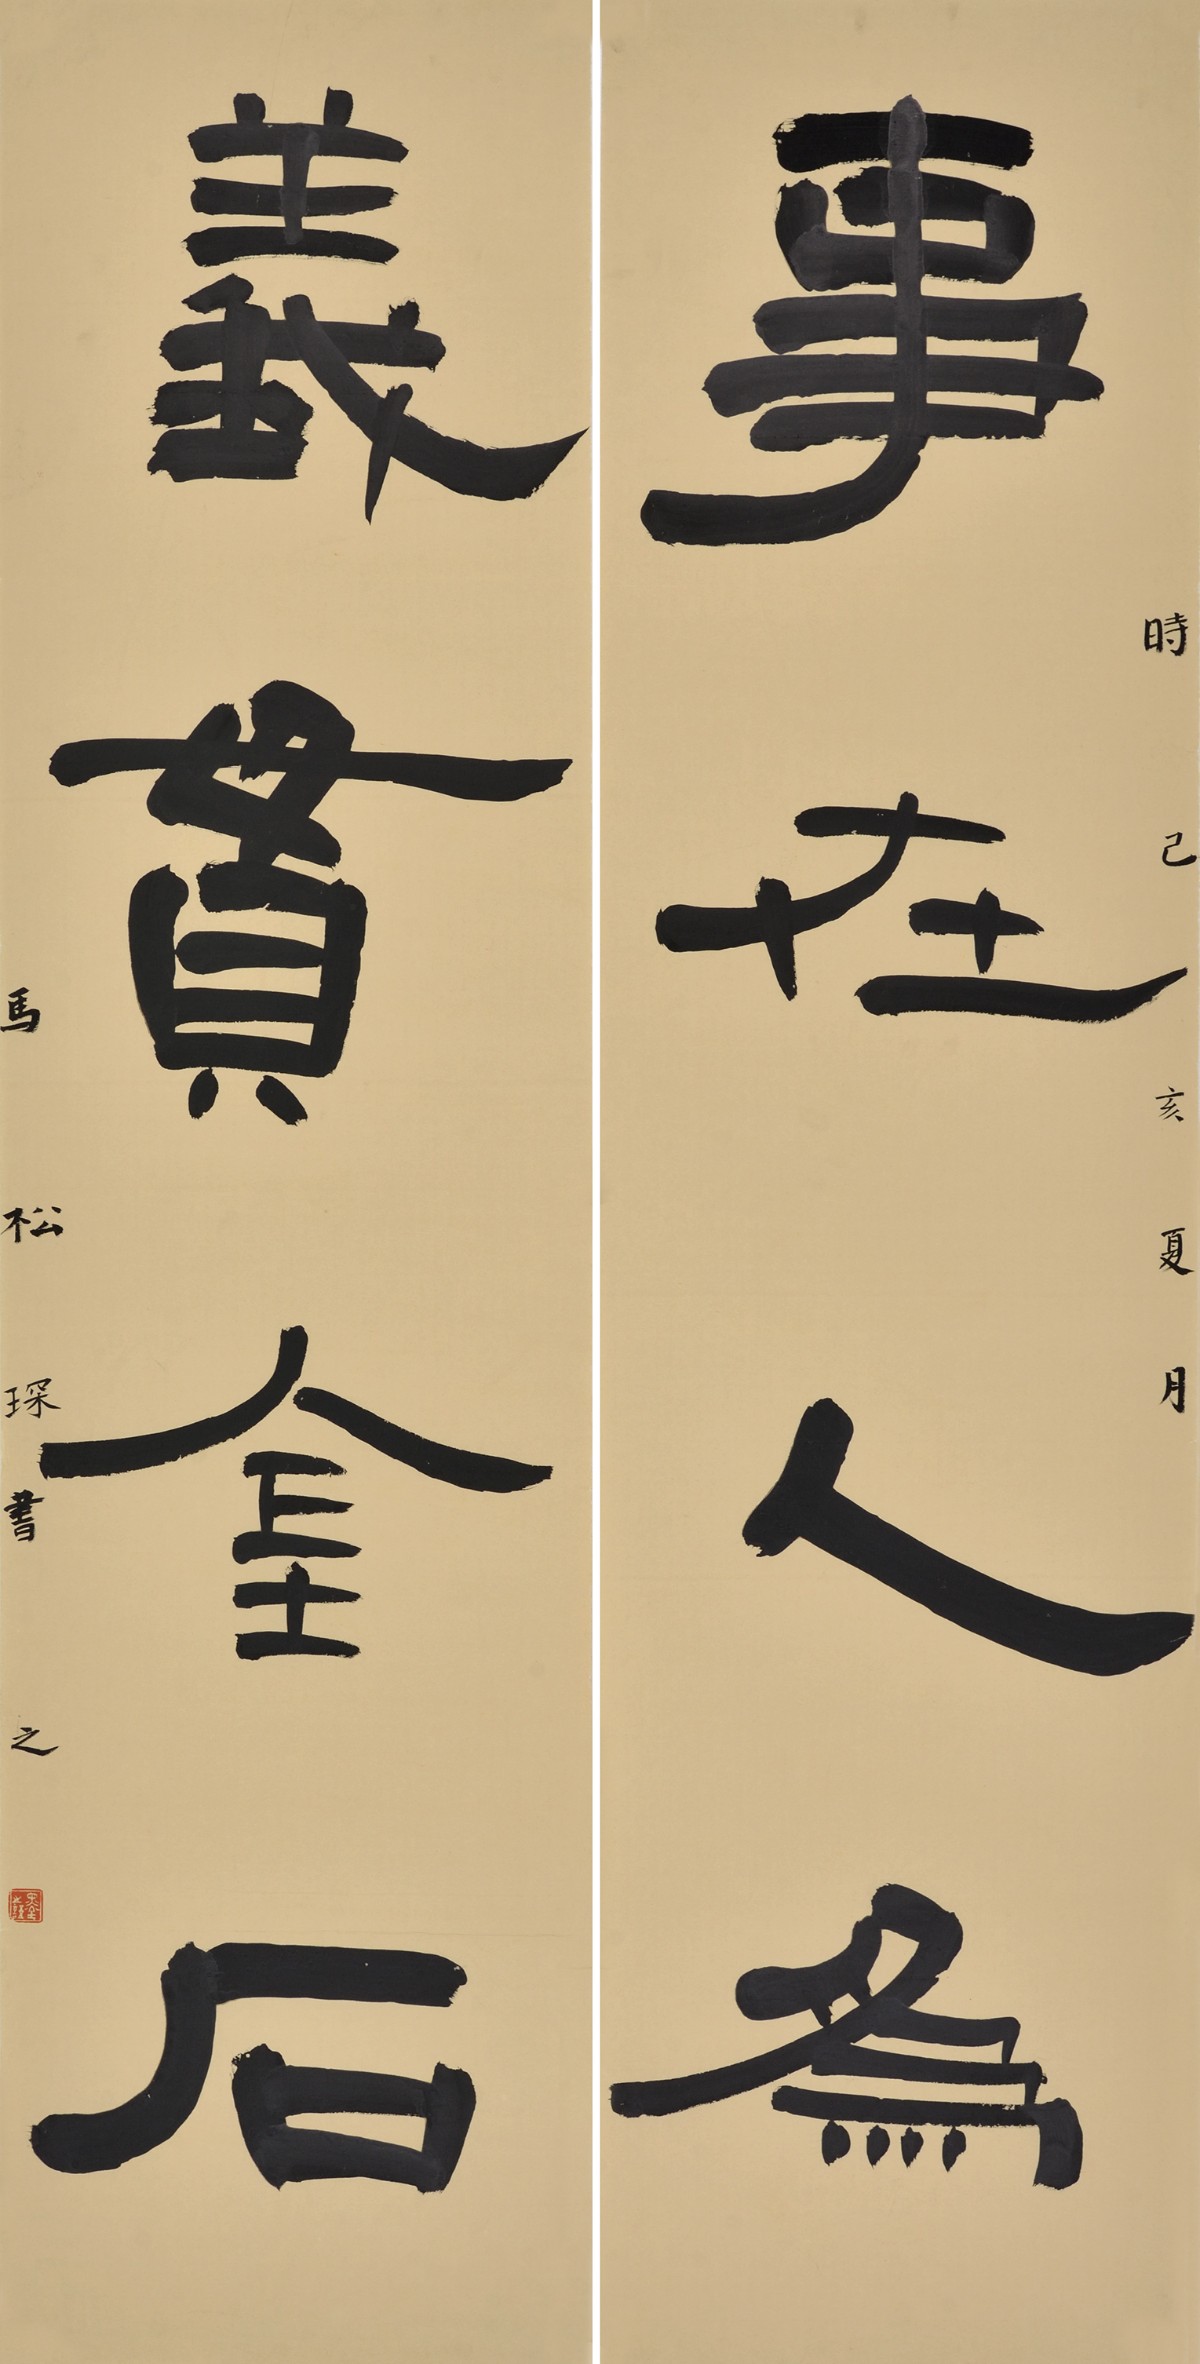 事在人為
時己亥夏月
義貫金石
馬松琛書之